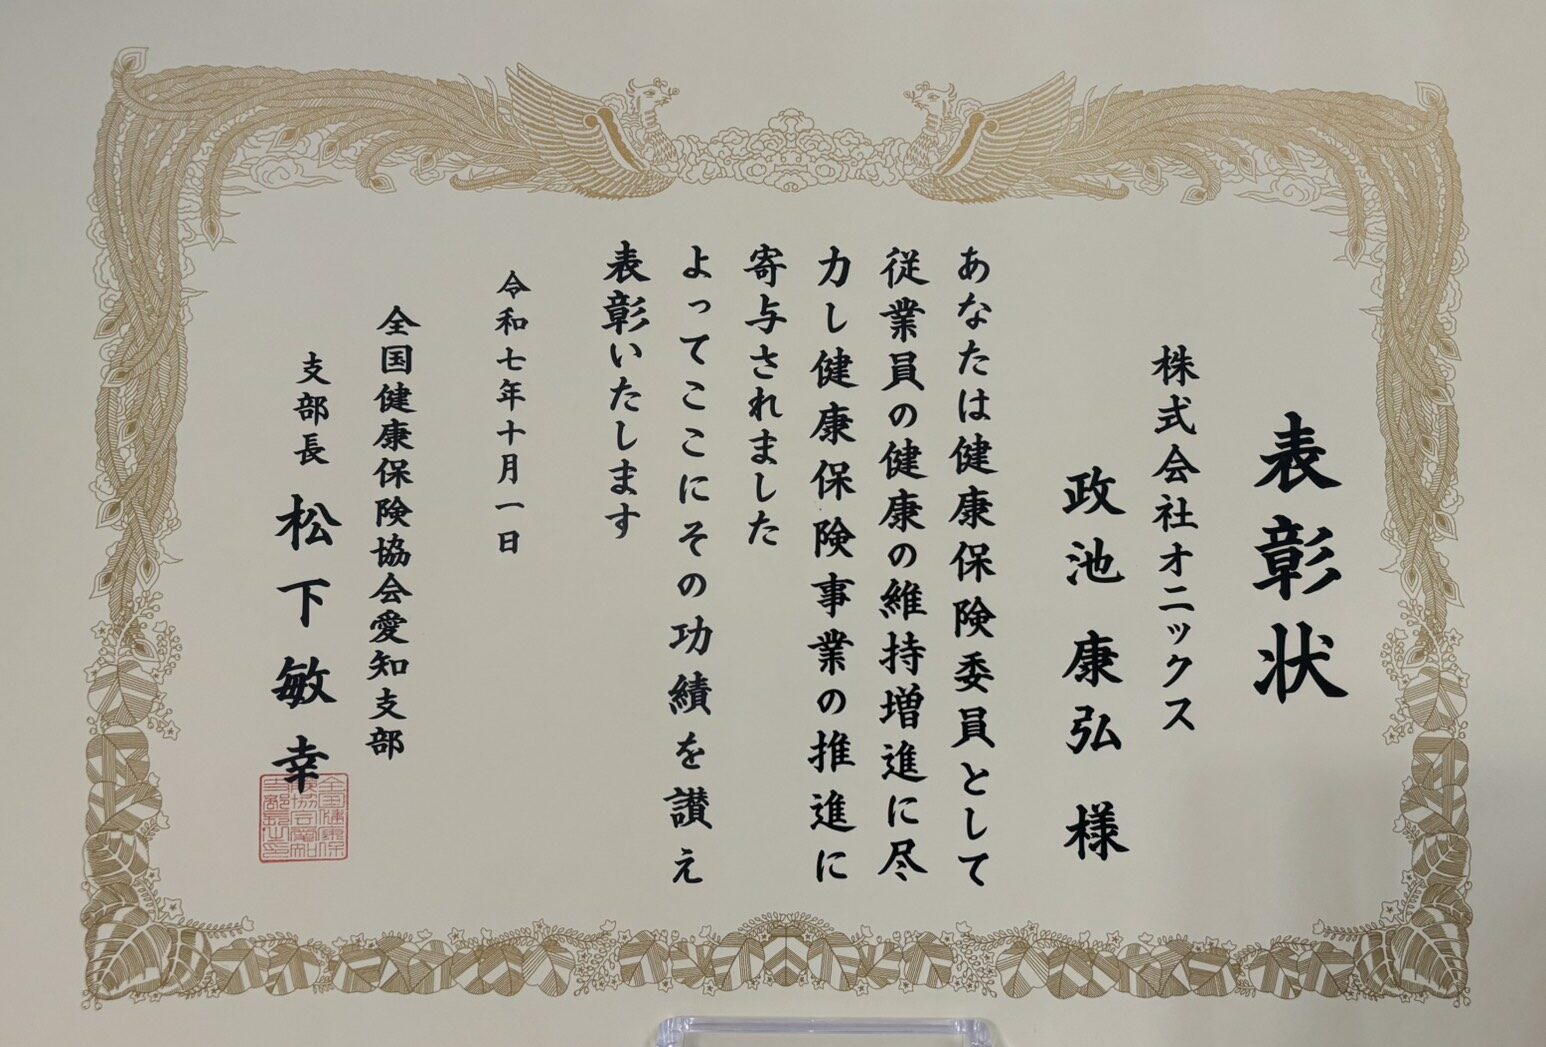 表彰状
株式会社オニックス
政池康弘様
あなたは健康保険委員として
従業員の健康の維持増進に尽
力し健康保険事業の推進に
寄与されました
よってここにその功績を讃え
表彰いたします
令和七年十月一日
全国健康保険協会愛知支部
支部長 松下敏幸